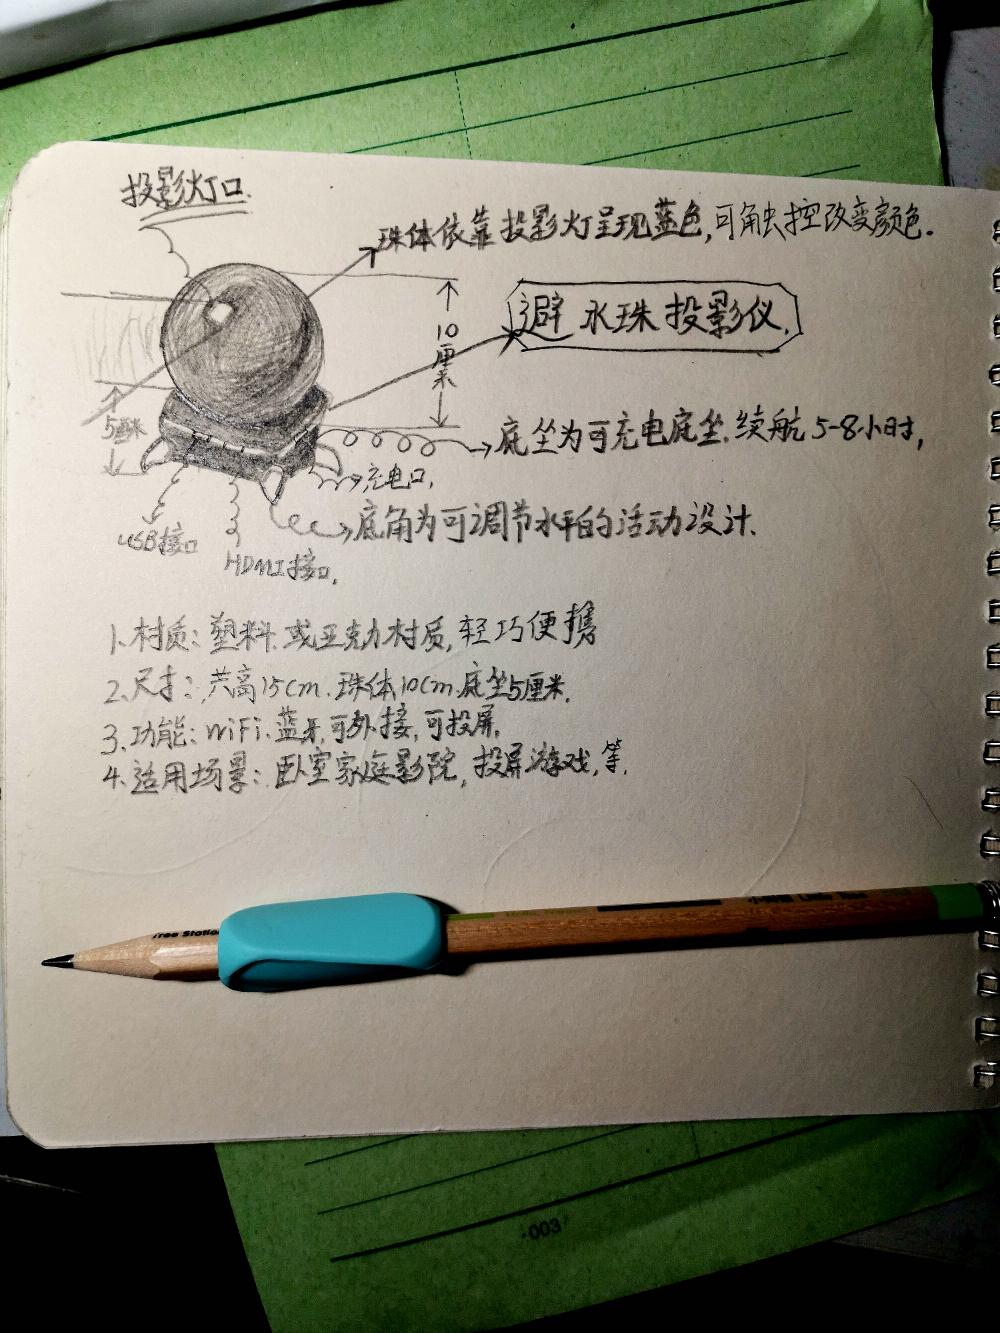 投影灯口.
珠体依靠投影灯呈现蓝色,可触控改变颜色.
避水珠投影仪.
10厘米
5厘米
底坐为可充电底坐.续航5-8小时,
充电口,
底角为可调节水平的活动设计.
USB接口
HDMI接口,
1.材质:塑料.或亚克力材质,轻巧便携
2.尺寸:共高15cm.珠体10cm.底坐5厘米.
3.功能:WiFi.蓝牙,可外接,可投屏,
4.适用场景:卧室家庭影院,投屏游戏,等.
Free Station
003